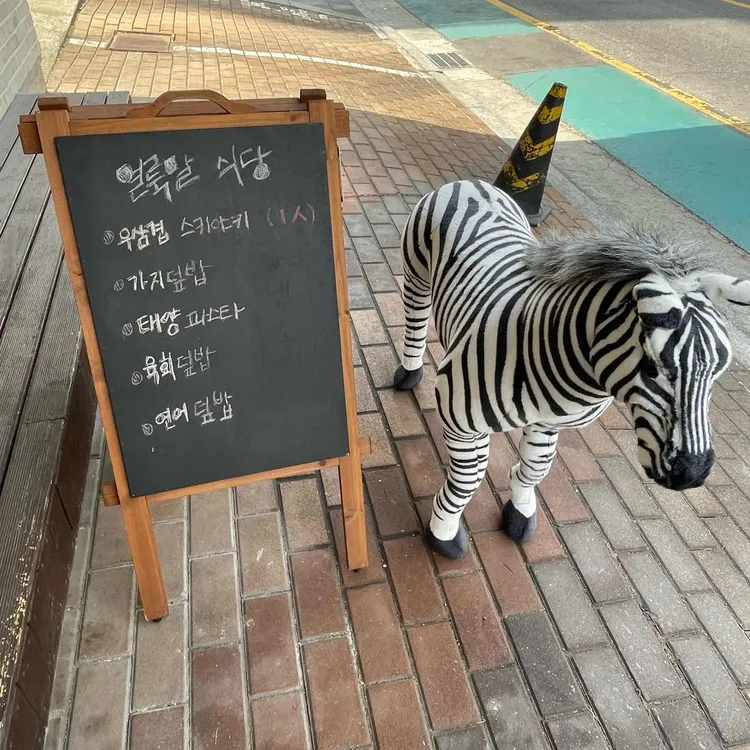 얼룩말 식당
우삼겹 스키야키 (1人)
가지덮밥
태양 파스타
육회덮밥
연어 덮밥